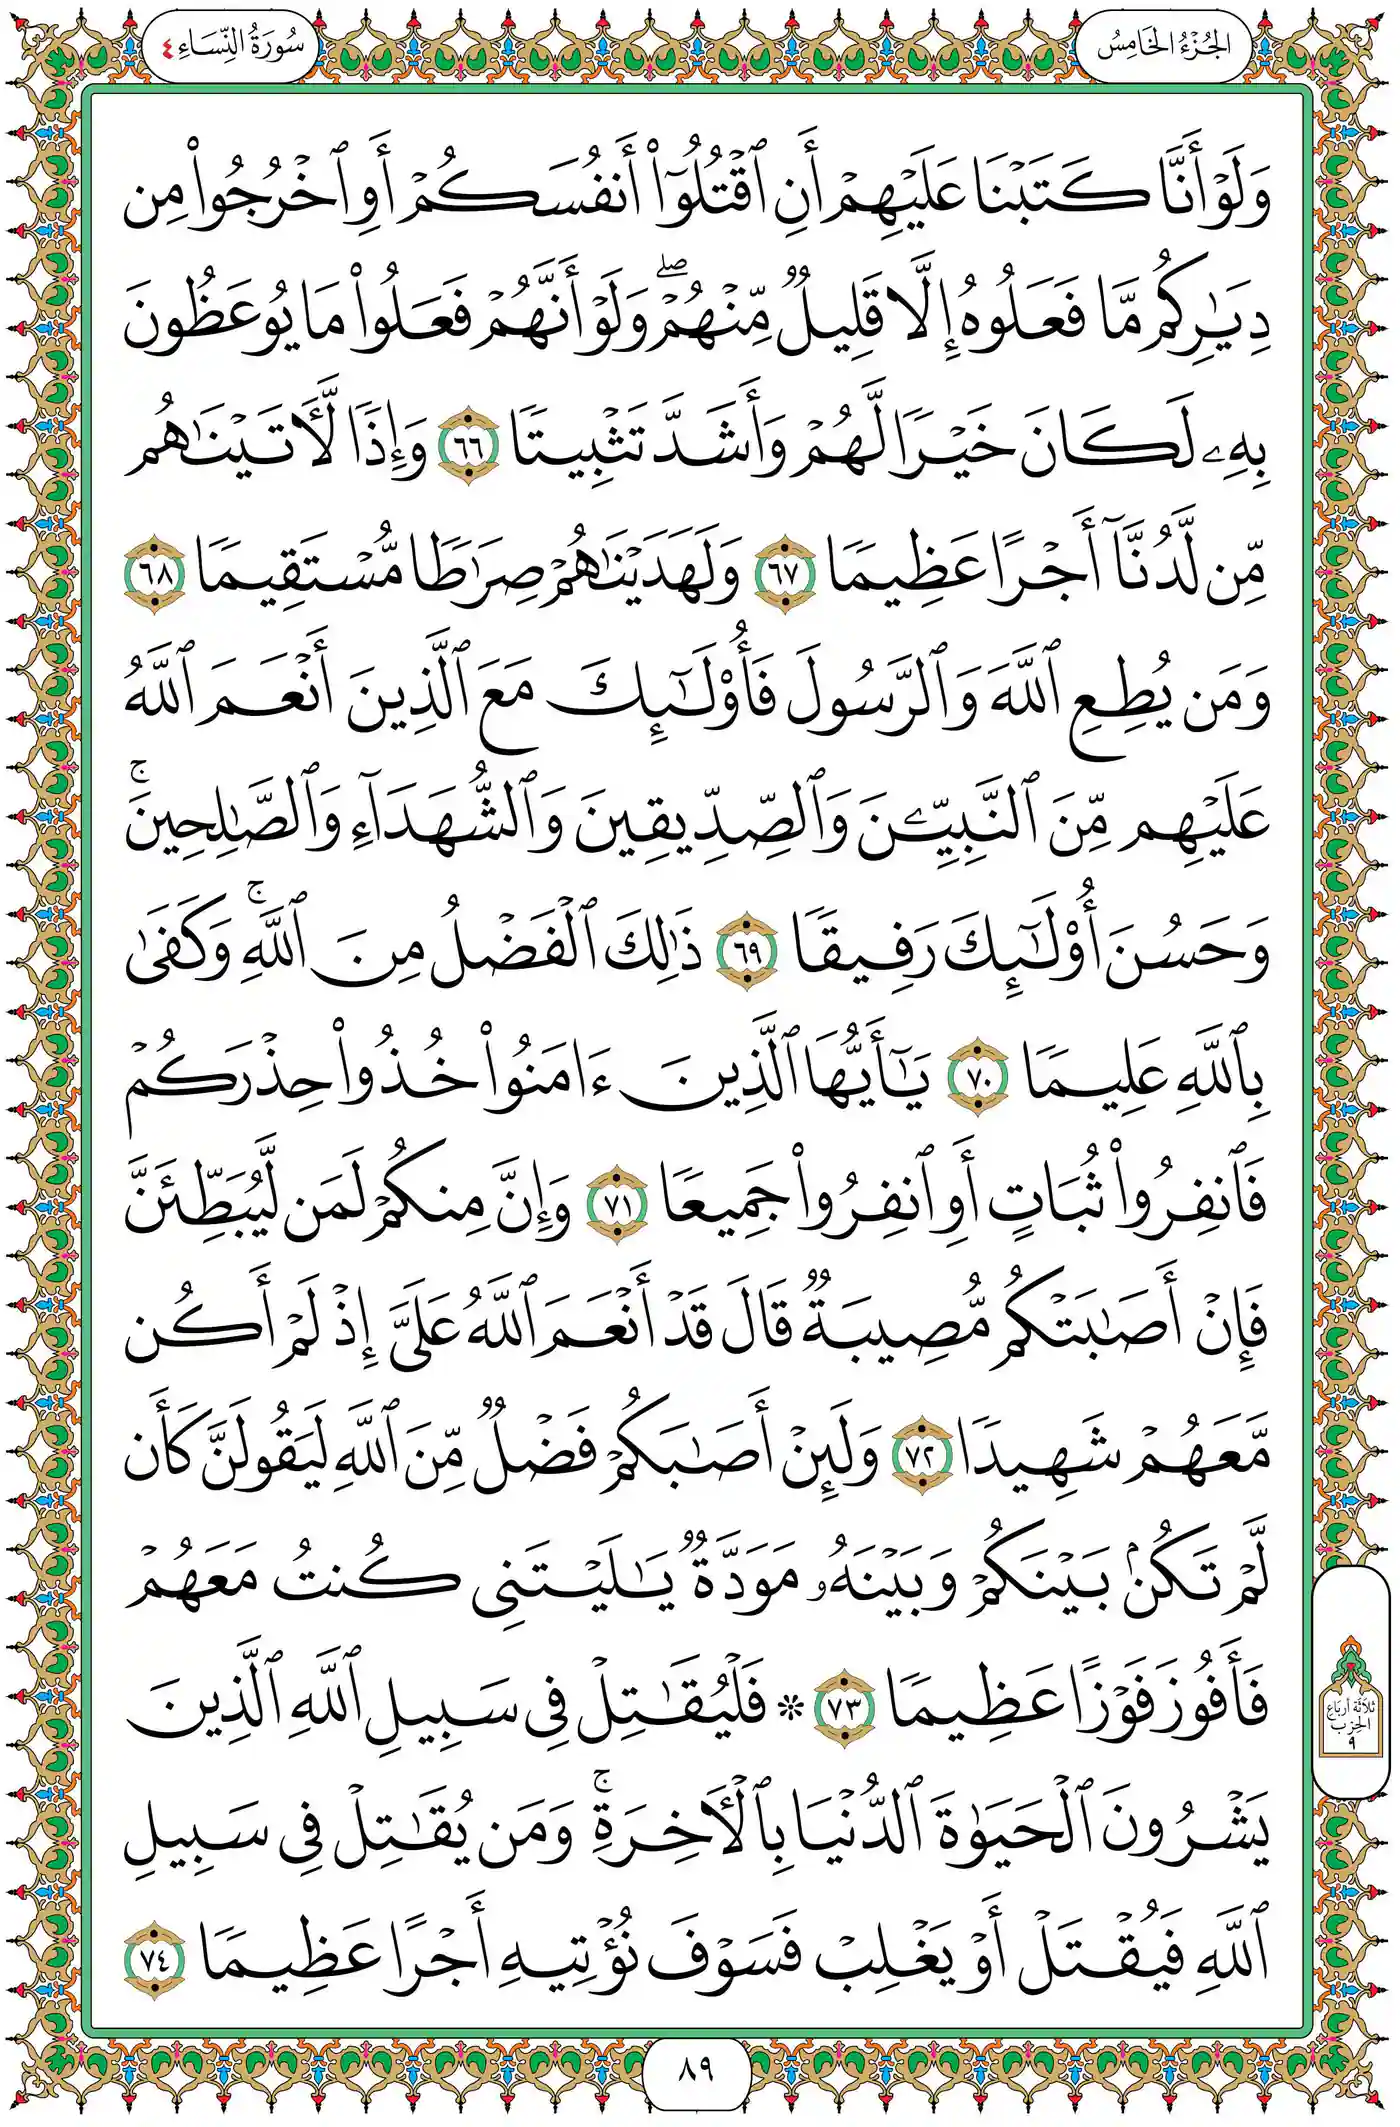 الجُزْءُ الخَامِسُ
سُورَةُ النِّسَاءِ ٤
وَلَوْ أَنَّا كَتَبْنَا عَلَيْهِمْ أَنِ ٱقْتُلُوٓا۟ أَنفُسَكُمْ أَوِ ٱخْرُجُوا۟ مِن
دِيَـٰرِكُم مَّا فَعَلُوهُ إِلَّا قَلِيلٌ مِّنْهُمْ ۖ وَلَوْ أَنَّهُمْ فَعَلُوا۟ مَا يُوعَظُونَ
بِهِۦ لَكَانَ خَيْرًا لَّهُمْ وَأَشَدَّ تَثْبِيتًا ٦٦ وَإِذًا لَّـَٔاتَيْنَـٰهُم
مِّن لَّدُنَّآ أَجْرًا عَظِيمًا ٦٧ وَلَهَدَيْنَـٰهُمْ صِرَٰطًا مُّسْتَقِيمًا ٦٨
وَمَن يُطِعِ ٱللَّهَ وَٱلرَّسُولَ فَأُو۟لَـٰٓئِكَ مَعَ ٱلَّذِينَ أَنْعَمَ ٱللَّهُ
عَلَيْهِم مِّنَ ٱلنَّبِيِّـۧنَ وَٱلصِّدِّيقِينَ وَٱلشُّهَدَآءِ وَٱلصَّـٰلِحِينَ ۚ
وَحَسُنَ أُو۟لَـٰٓئِكَ رَفِيقًا ٦٩ ذَٰلِكَ ٱلْفَضْلُ مِنَ ٱللَّهِ ۚ وَكَفَىٰ
بِٱللَّهِ عَلِيمًا ٧٠ يَـٰٓأَيُّهَا ٱلَّذِينَ ءَامَنُوا۟ خُذُوا۟ حِذْرَكُمْ
فَٱنفِرُوا۟ ثُبَاتٍ أَوِ ٱنفِرُوا۟ جَمِيعًا ٧١ وَإِنَّ مِنكُمْ لَمَن لَّيُبَطِّئَنَّ
فَإِنْ أَصَـٰبَتْكُم مُّصِيبَةٌ قَالَ قَدْ أَنْعَمَ ٱللَّهُ عَلَىَّ إِذْ لَمْ أَكُن
مَّعَهُمْ شَهِيدًا ٧٢ وَلَئِنْ أَصَـٰبَكُمْ فَضْلٌ مِّنَ ٱللَّهِ لَيَقُولَنَّ كَأَن
لَّمْ تَكُنۢ بَيْنَكُمْ وَبَيْنَهُۥ مَوَدَّةٌ يَـٰلَيْتَنِى كُنتُ مَعَهُمْ
فَأَفُوزَ فَوْزًا عَظِيمًا ٧٣ ۞ فَلْيُقَـٰتِلْ فِى سَبِيلِ ٱللَّهِ ٱلَّذِينَ
يَشْرُونَ ٱلْحَيَوٰةَ ٱلدُّنْيَا بِٱلْـَٔاخِرَةِ ۚ وَمَن يُقَـٰتِلْ فِى سَبِيلِ
ٱللَّهِ فَيُقْتَلْ أَوْ يَغْلِبْ فَسَوْفَ نُؤْتِيهِ أَجْرًا عَظِيمًا ٧٤
ثَلَاثَة أربَاع
الحِزْب
٩
٨٩